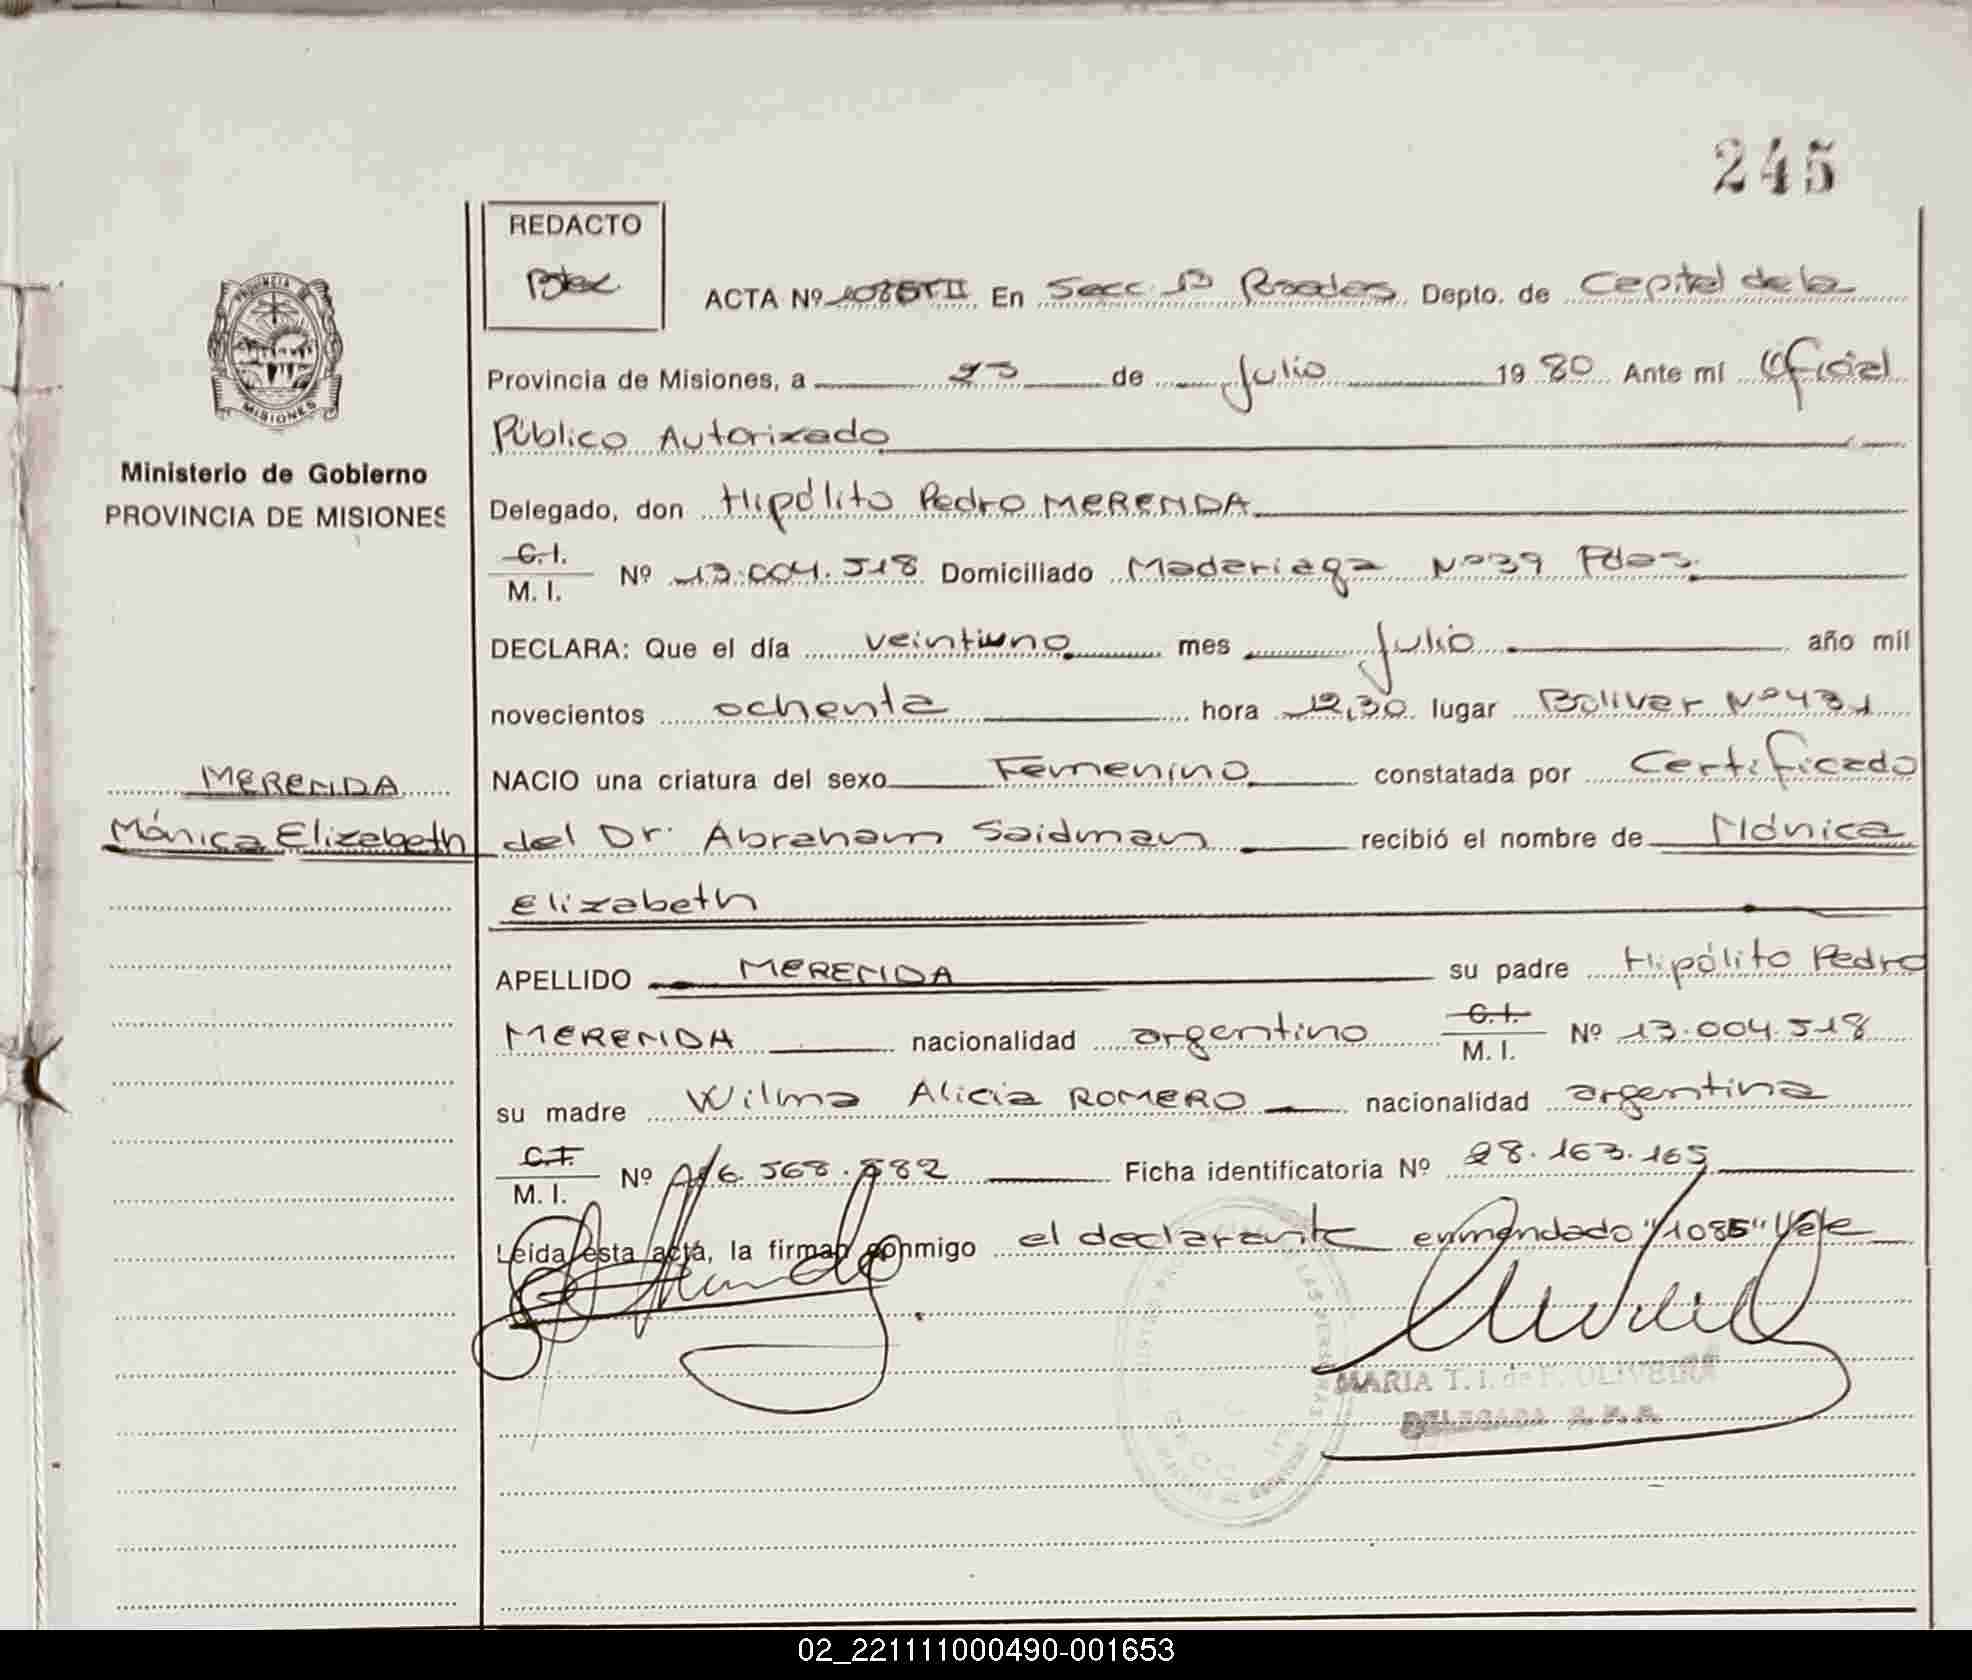 245
REDACTO
PROVINCIA DE
MISIONES
Ministerio de Gobierno
PROVINCIA DE MISIONES
ACTA Nº 1085 T II En Secc. 1ª Posadas Depto. de Capital de la
Provincia de Misiones, a 23 de Julio 1980 Ante mí Oficial
Público Autorizado
Delegado, don Hipólito Pedro MERENDA
C.I.
M. I. Nº 13.004.518 Domiciliado Madariaga Nº 39 Pdas.
DECLARA: Que el día veintiuno mes Julio año mil
novecientos ochenta hora 12,30 lugar Bolivar Nº 431
MERENDA
NACIO una criatura del sexo Femenino constatada por Certificado
Mónica Elizabeth
del Dr. Abraham Saidman recibió el nombre de Mónica
Elizabeth
APELLIDO MERENDA su padre Hipólito Pedro
MERENDA nacionalidad argentino C.I.
M. I. Nº 13.004.518
su madre Wilma Alicia ROMERO nacionalidad argentina
C.I.
M. I. Nº Ficha identificatoria Nº 28.163.165
Leída esta acta, la firman conmigo el declarante enmendado "1085" Vale
MARIA T. I. de F. OLIVEIRA
DELEGADA R. P. P.
02_221111000490-001653